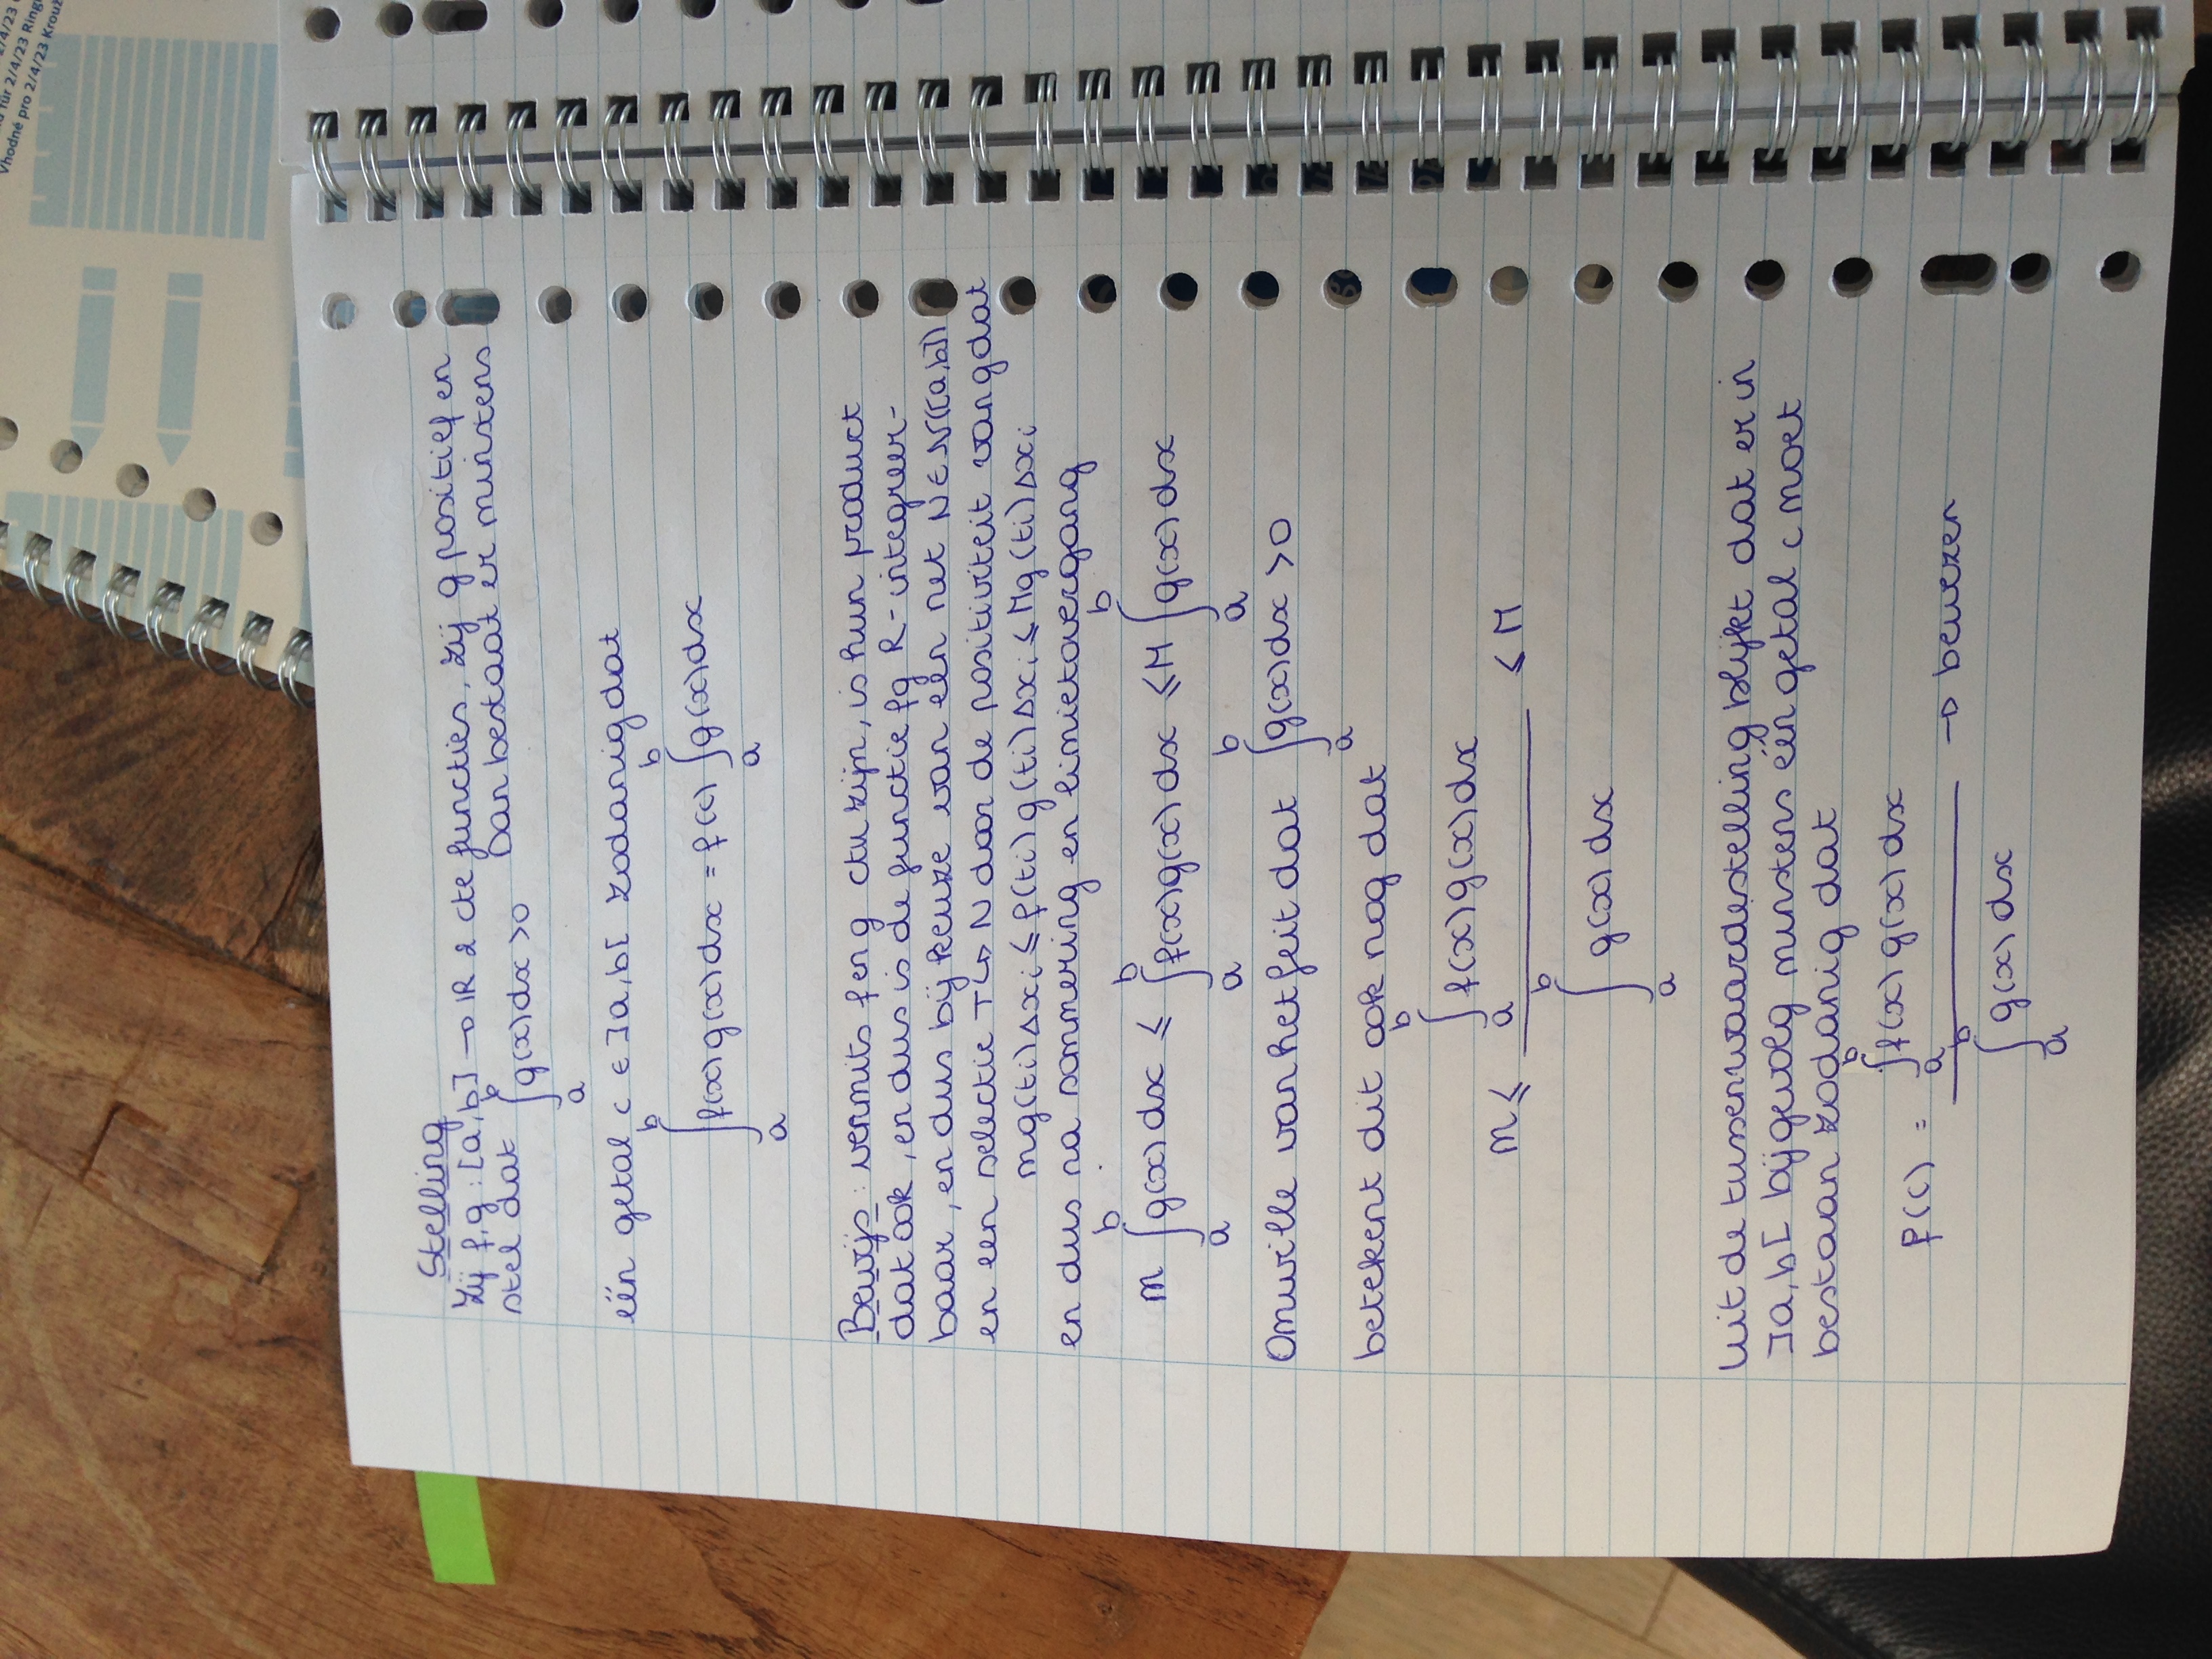 2/4/23
für 2/4/23 Ring
Vhodné pro 2/4/23 Krouž
Stelling
Zij f,g : [a,b] → ℝ 2 cte functies, zij g positief en
stel dat ∫_a^b g(x)dx >0 Dan bestaat er minstens
één getal c ∈ ]a,b[ zodanig dat
∫_a^b f(x)g(x)dx = f(c) ∫_a^b g(x)dx
Bewijs: vermits f en g ctu zijn, is hun product
dat ook, en dus is de functie fg R-integreer-
baar, en dus bij keuze van een net N ∈ N([a,b])
en een selectie T ↪ N door de positiviteit van g dat
mg(ti)Δxi ⩽ f(ti)g(ti)Δxi ⩽ Mg(ti)Δxi
en dus na sommering en limietovergang
m ∫_a^b g(x)dx ⩽ ∫_a^b f(x)g(x)dx ⩽ M ∫_a^b g(x)dx
Omwille van het feit dat ∫_a^b g(x)dx >0
betekent dit ook nog dat
m ⩽ (∫_a^b f(x)g(x)dx) / (∫_a^b g(x)dx) ⩽ M
Uit de tussenwaardestelling blijkt dat er in
]a,b[ bijgevolg minstens één getal c moet
bestaan zodanig dat
f(c) = (∫_a^b f(x)g(x)dx) / (∫_a^b g(x)dx) → bewezen